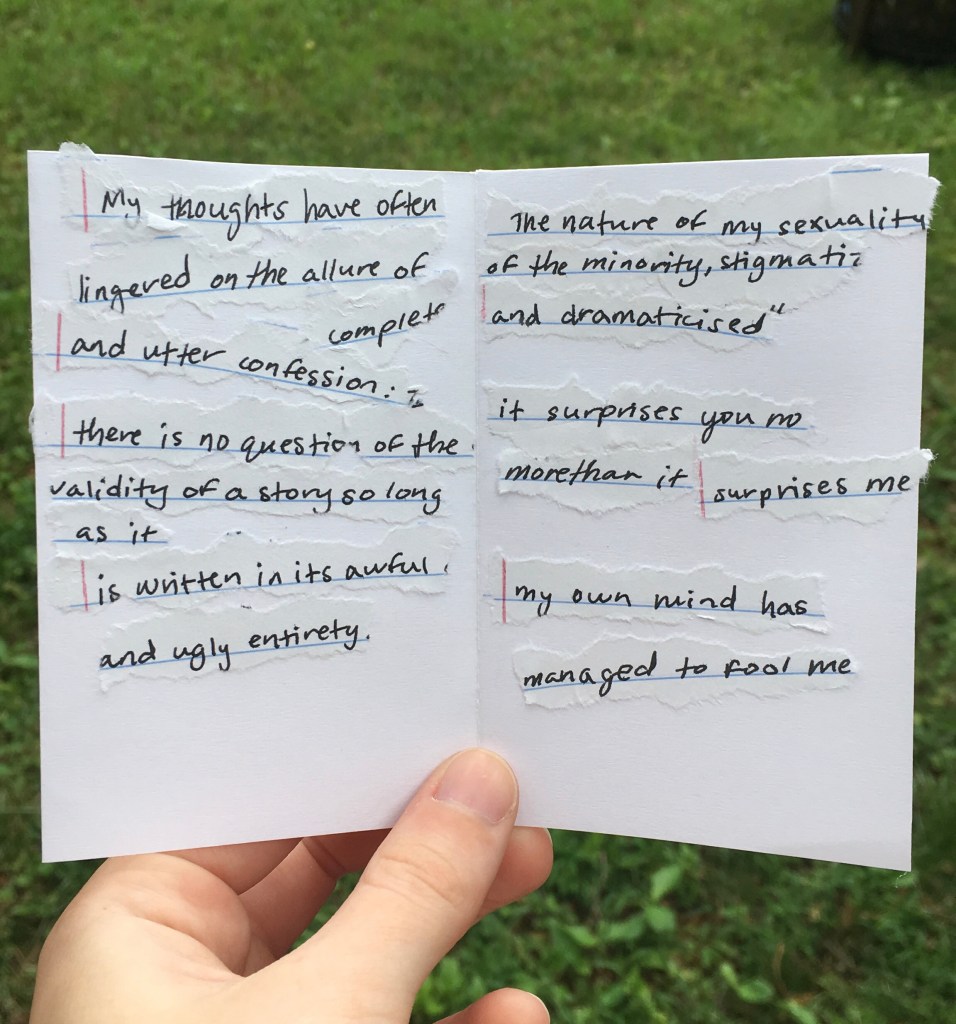 My thoughts have often
lingered on the allure of
complete
and utter confession:
there is no question of the
validity of a story so long
as it
is written in its awful
and ugly entirety.
The nature of my sexuality
of the minority, stigmatiz
and dramaticised"
it surprises you no
morethan it surprises me
my own mind has
managed to fool me